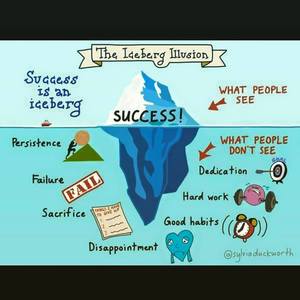 The Iceberg Illusion
Success
is an
iceberg
SUCCESS!
WHAT PEOPLE
SEE
WHAT PEOPLE
DON'T SEE
Persistence
Failure
FAIL
Sacrifice
Disappointment
Dedication
GOAL
Hard work
Good habits
@sylviaduckworth